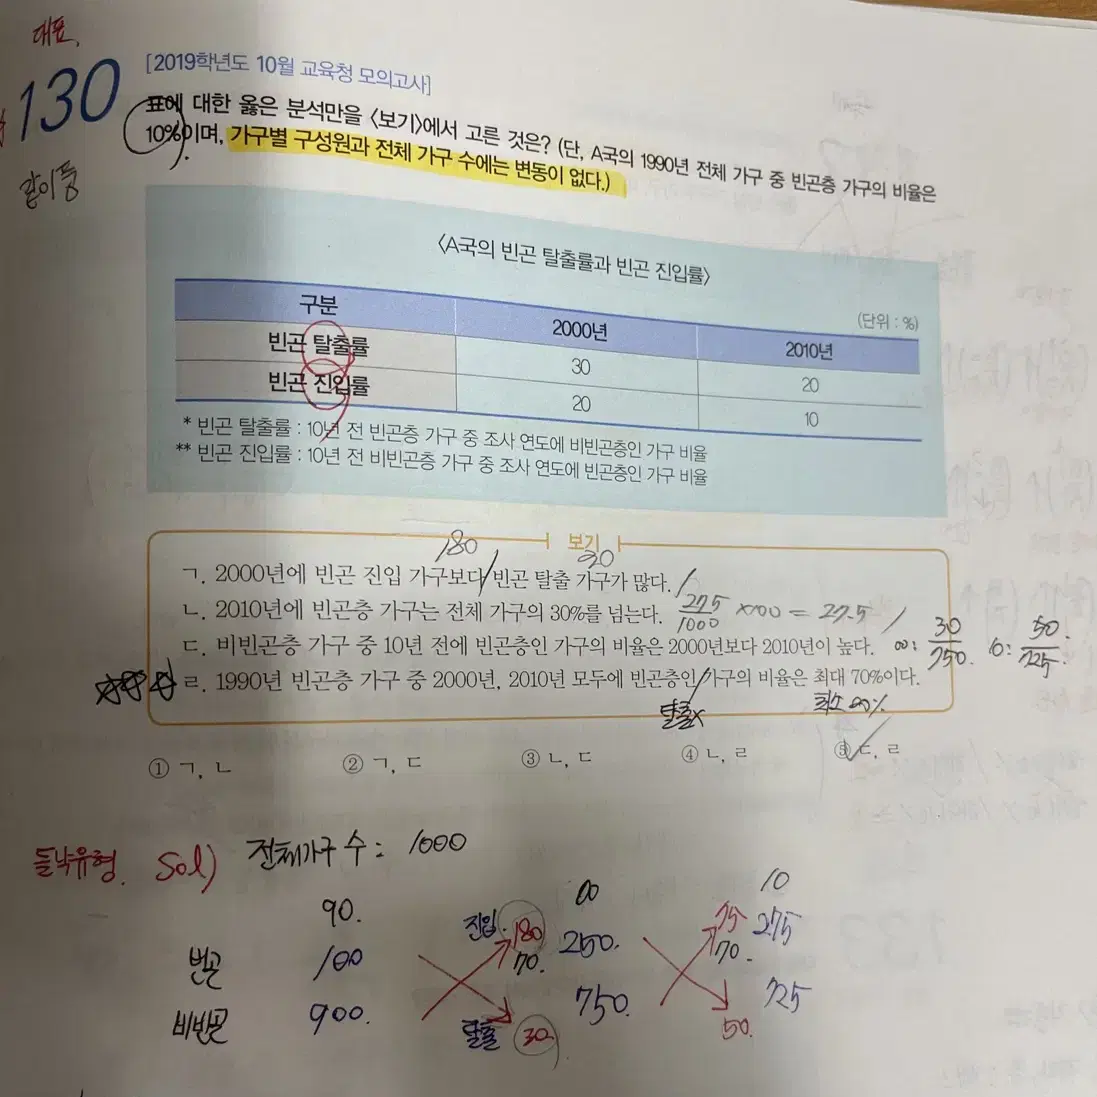 대표.
130
같이 풂
[2019학년도 10월 교육청 모의고사]
표에 대한 옳은 분석만을 <보기>에서 고른 것은? (단, A국의 1990년 전체 가구 중 빈곤층 가구의 비율은
10%이며, 가구별 구성원과 전체 가구 수에는 변동이 없다.)
<A국의 빈곤 탈출률과 빈곤 진입률>
(단위 : %)
구분 2000년 2010년
빈곤 탈출률 30 20
빈곤 진입률 20 10
* 빈곤 탈출률 : 10년 전 빈곤층 가구 중 조사 연도에 비빈곤층인 가구 비율
** 빈곤 진입률 : 10년 전 비빈곤층 가구 중 조사 연도에 빈곤층인 가구 비율
보기
180 30
ㄱ. 2000년에 빈곤 진입 가구보다 빈곤 탈출 가구가 많다.
ㄴ. 2010년에 빈곤층 가구는 전체 가구의 30%를 넘는다. 275/1000 ×100 = 27.5
ㄷ. 비빈곤층 가구 중 10년 전에 빈곤층인 가구의 비율은 2000년보다 2010년이 높다. 00: 30/750. 10: 50/725.
ㄹ. 1990년 빈곤층 가구 중 2000년, 2010년 모두에 빈곤층인 가구의 비율은 최대 70%이다.
탈출x 최소 20%
① ㄱ, ㄴ ② ㄱ, ㄷ ③ ㄴ, ㄷ ④ ㄴ, ㄹ ⑤ ㄷ, ㄹ
Sol) 전체가구 수 : 1000
90. 00 10
진입 180 75
빈곤 100 70. 250. 70. 275
비빈곤 900. 750. 725
탈출 30 50.